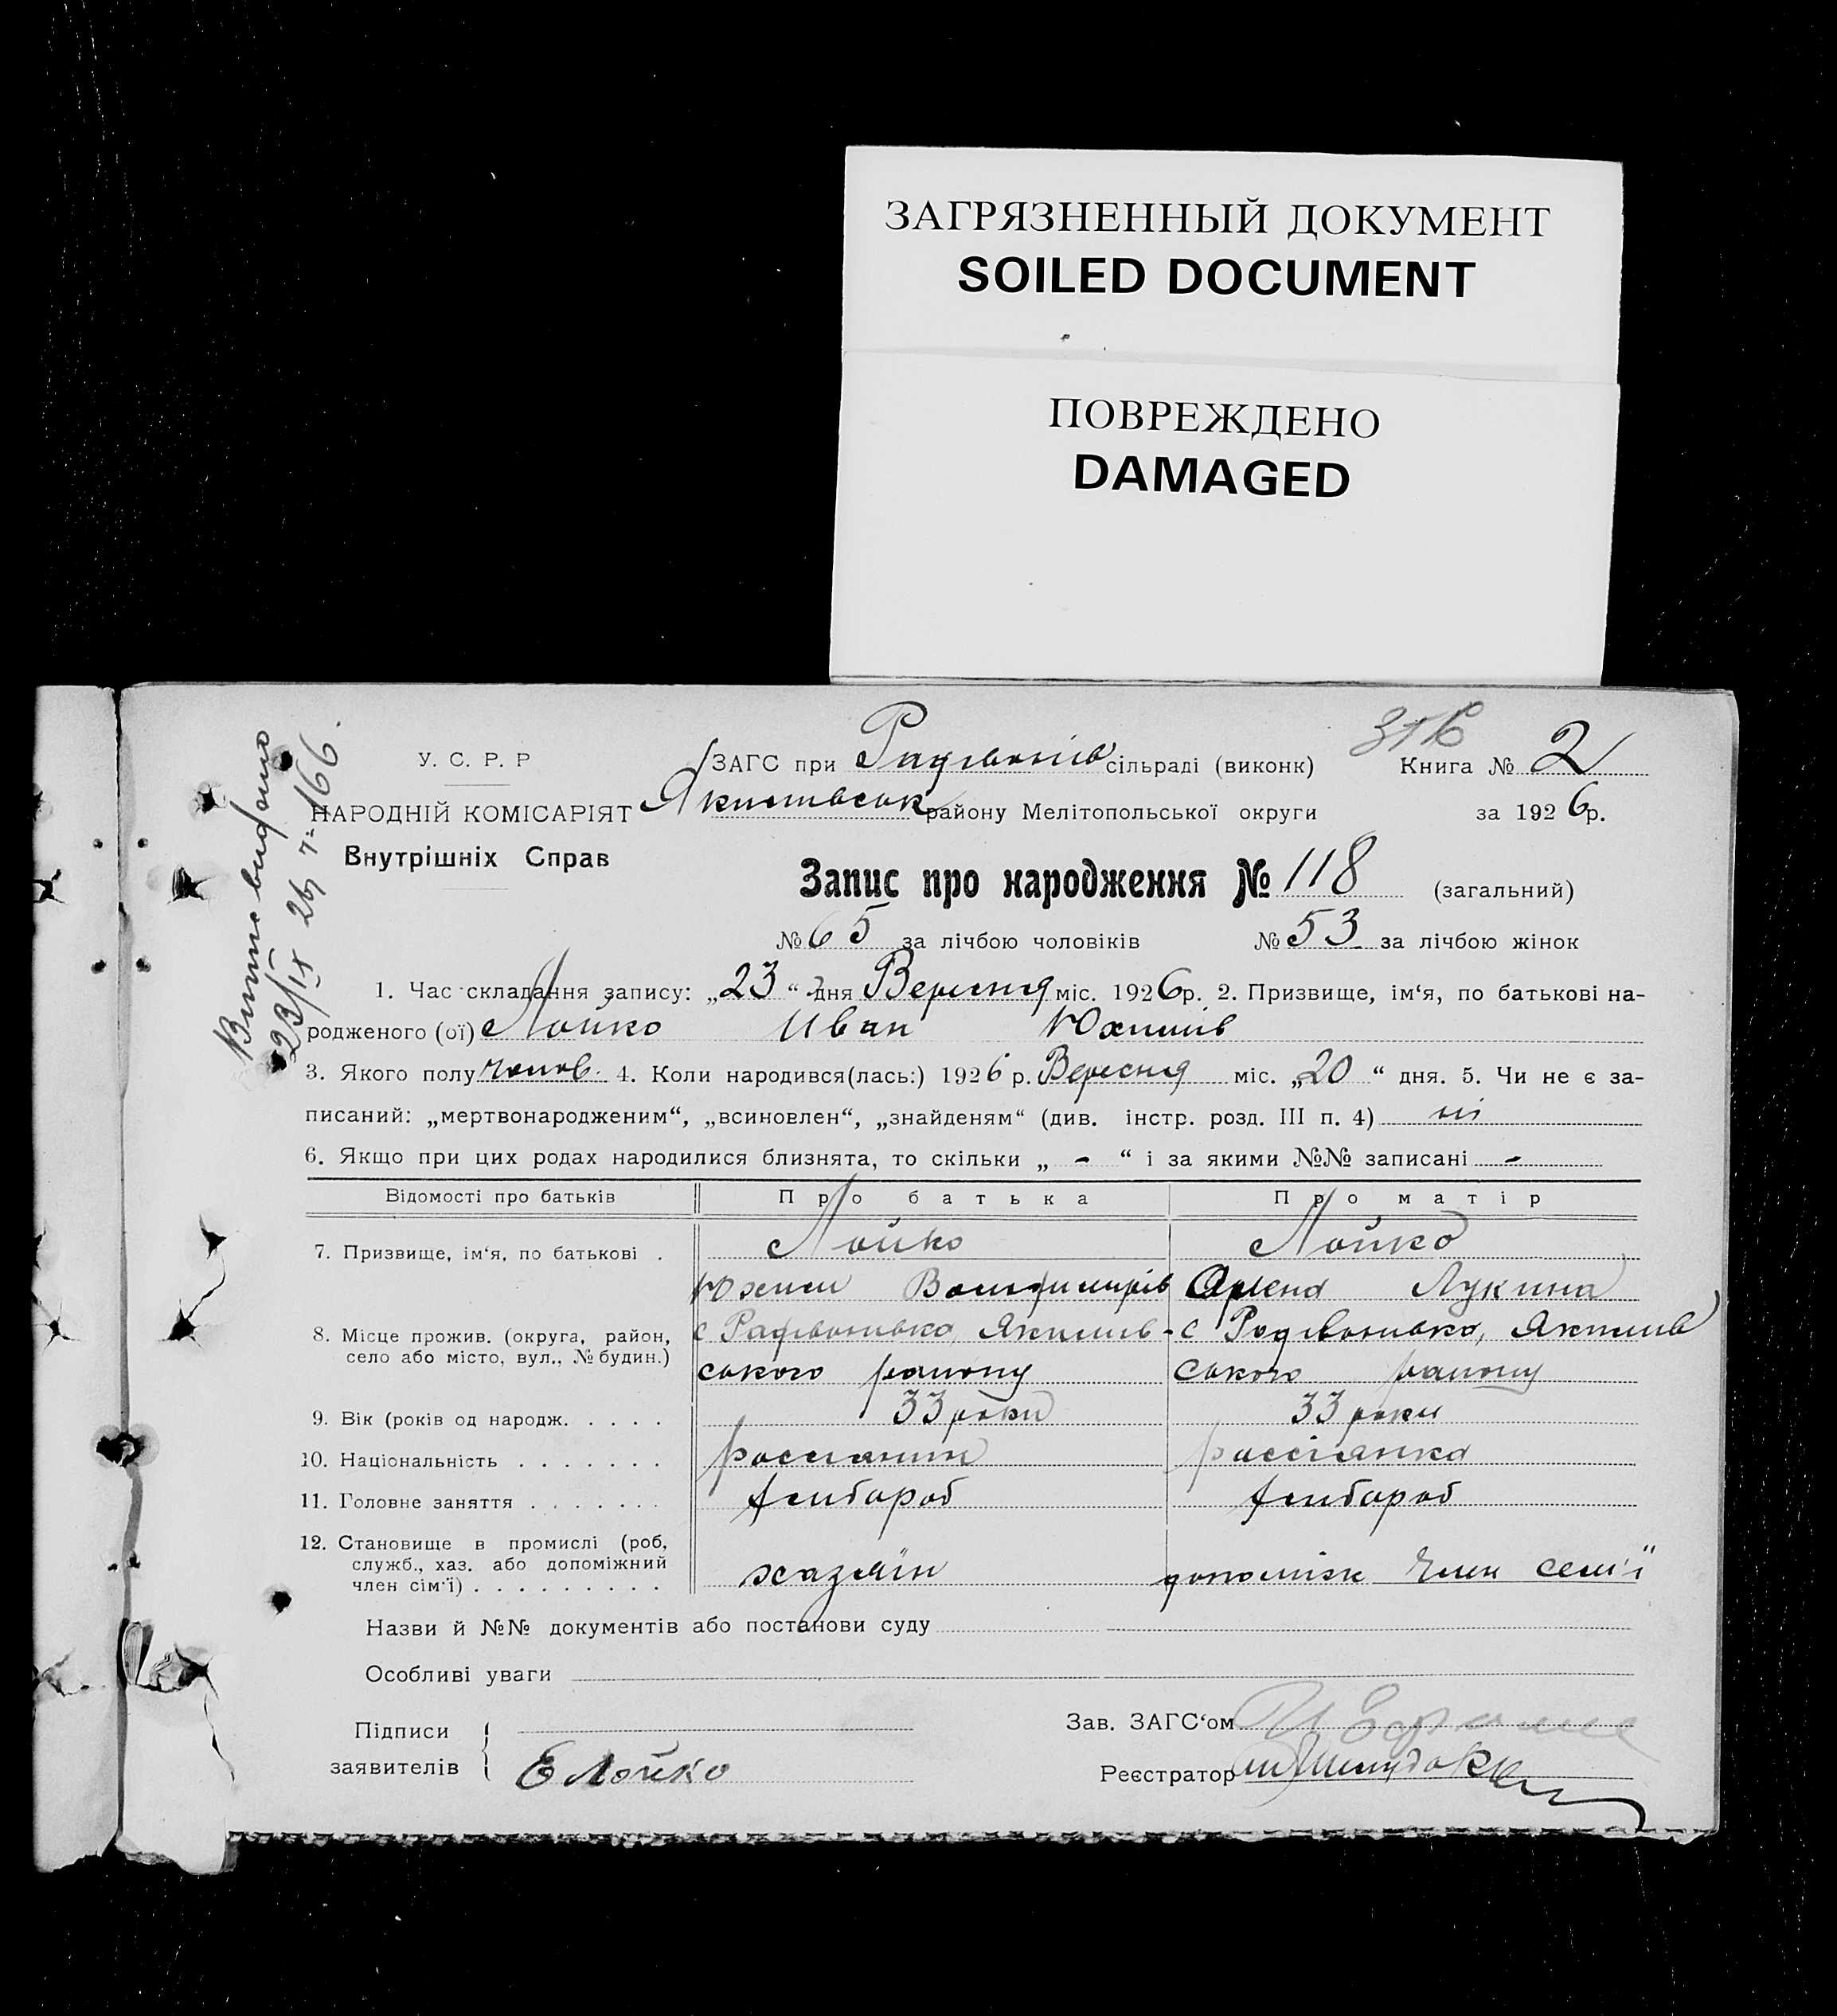 ЗАГРЯЗНЕННЫЙ ДОКУМЕНТ
SOILED DOCUMENT
ПОВРЕЖДЕНО
DAMAGED
У. С. Р. Р
НАРОДНІЙ КОМІСАРІЯТ
Внутрішніх Справ
ЗАГС при Радівонів сільраді (виконк) Книга № 2
Якимівськ району Мелітопольської округи за 1926р.
Запис про народження № 118 (загальний)
№ 65 за лічбою чоловіків № 53 за лічбою жінок
1. Час складання запису: „23“ дня Вересня міс. 1926р. 2. Призвище, ім‘я, по батькові на-
родженого (ої) Лойко Иван Юхимів
3. Якого полу чолов. 4. Коли народився(лась:) 1926 р. Вересня міс. „20“ дня. 5. Чи не є за-
писаний: „мертвонародженим“, „всиновлен“, „знайденям“ (див. інстр. розд. III п. 4) ні
6. Якщо при цих родах народилися близнята, то скільки „ - “ і за якими №№ записані -
Відомості про батьків Про батька Про матір
7. Призвище, ім‘я, по батькові . Лойко Лойко
Юхим Володимирів Лукина
8. Місце прожив. (округа, район, с Радівонівка, Якимів- с Радівонівка, Якимів
село або місто, вул., № будин.)
ського району ського району
9. Вік (років од народж. . . . . 33 роки 33 роки
10. Національність . . . . . . . россіянин россіянка
11. Головне заняття . . . . . . . хлібороб хлібороб
12. Становище в промислі (роб,
служб., хаз. або допоміжний
член сім‘ї) . . . . . . . . . хазяїн допоміж член семʼї
Назви й №№ документів або постанови суду
Особливі уваги
Підписи
заявителів
Е Лойко
Зав. ЗАГС‘ом
Реєстратор
Витяг видано
23/IX 26 7-166.